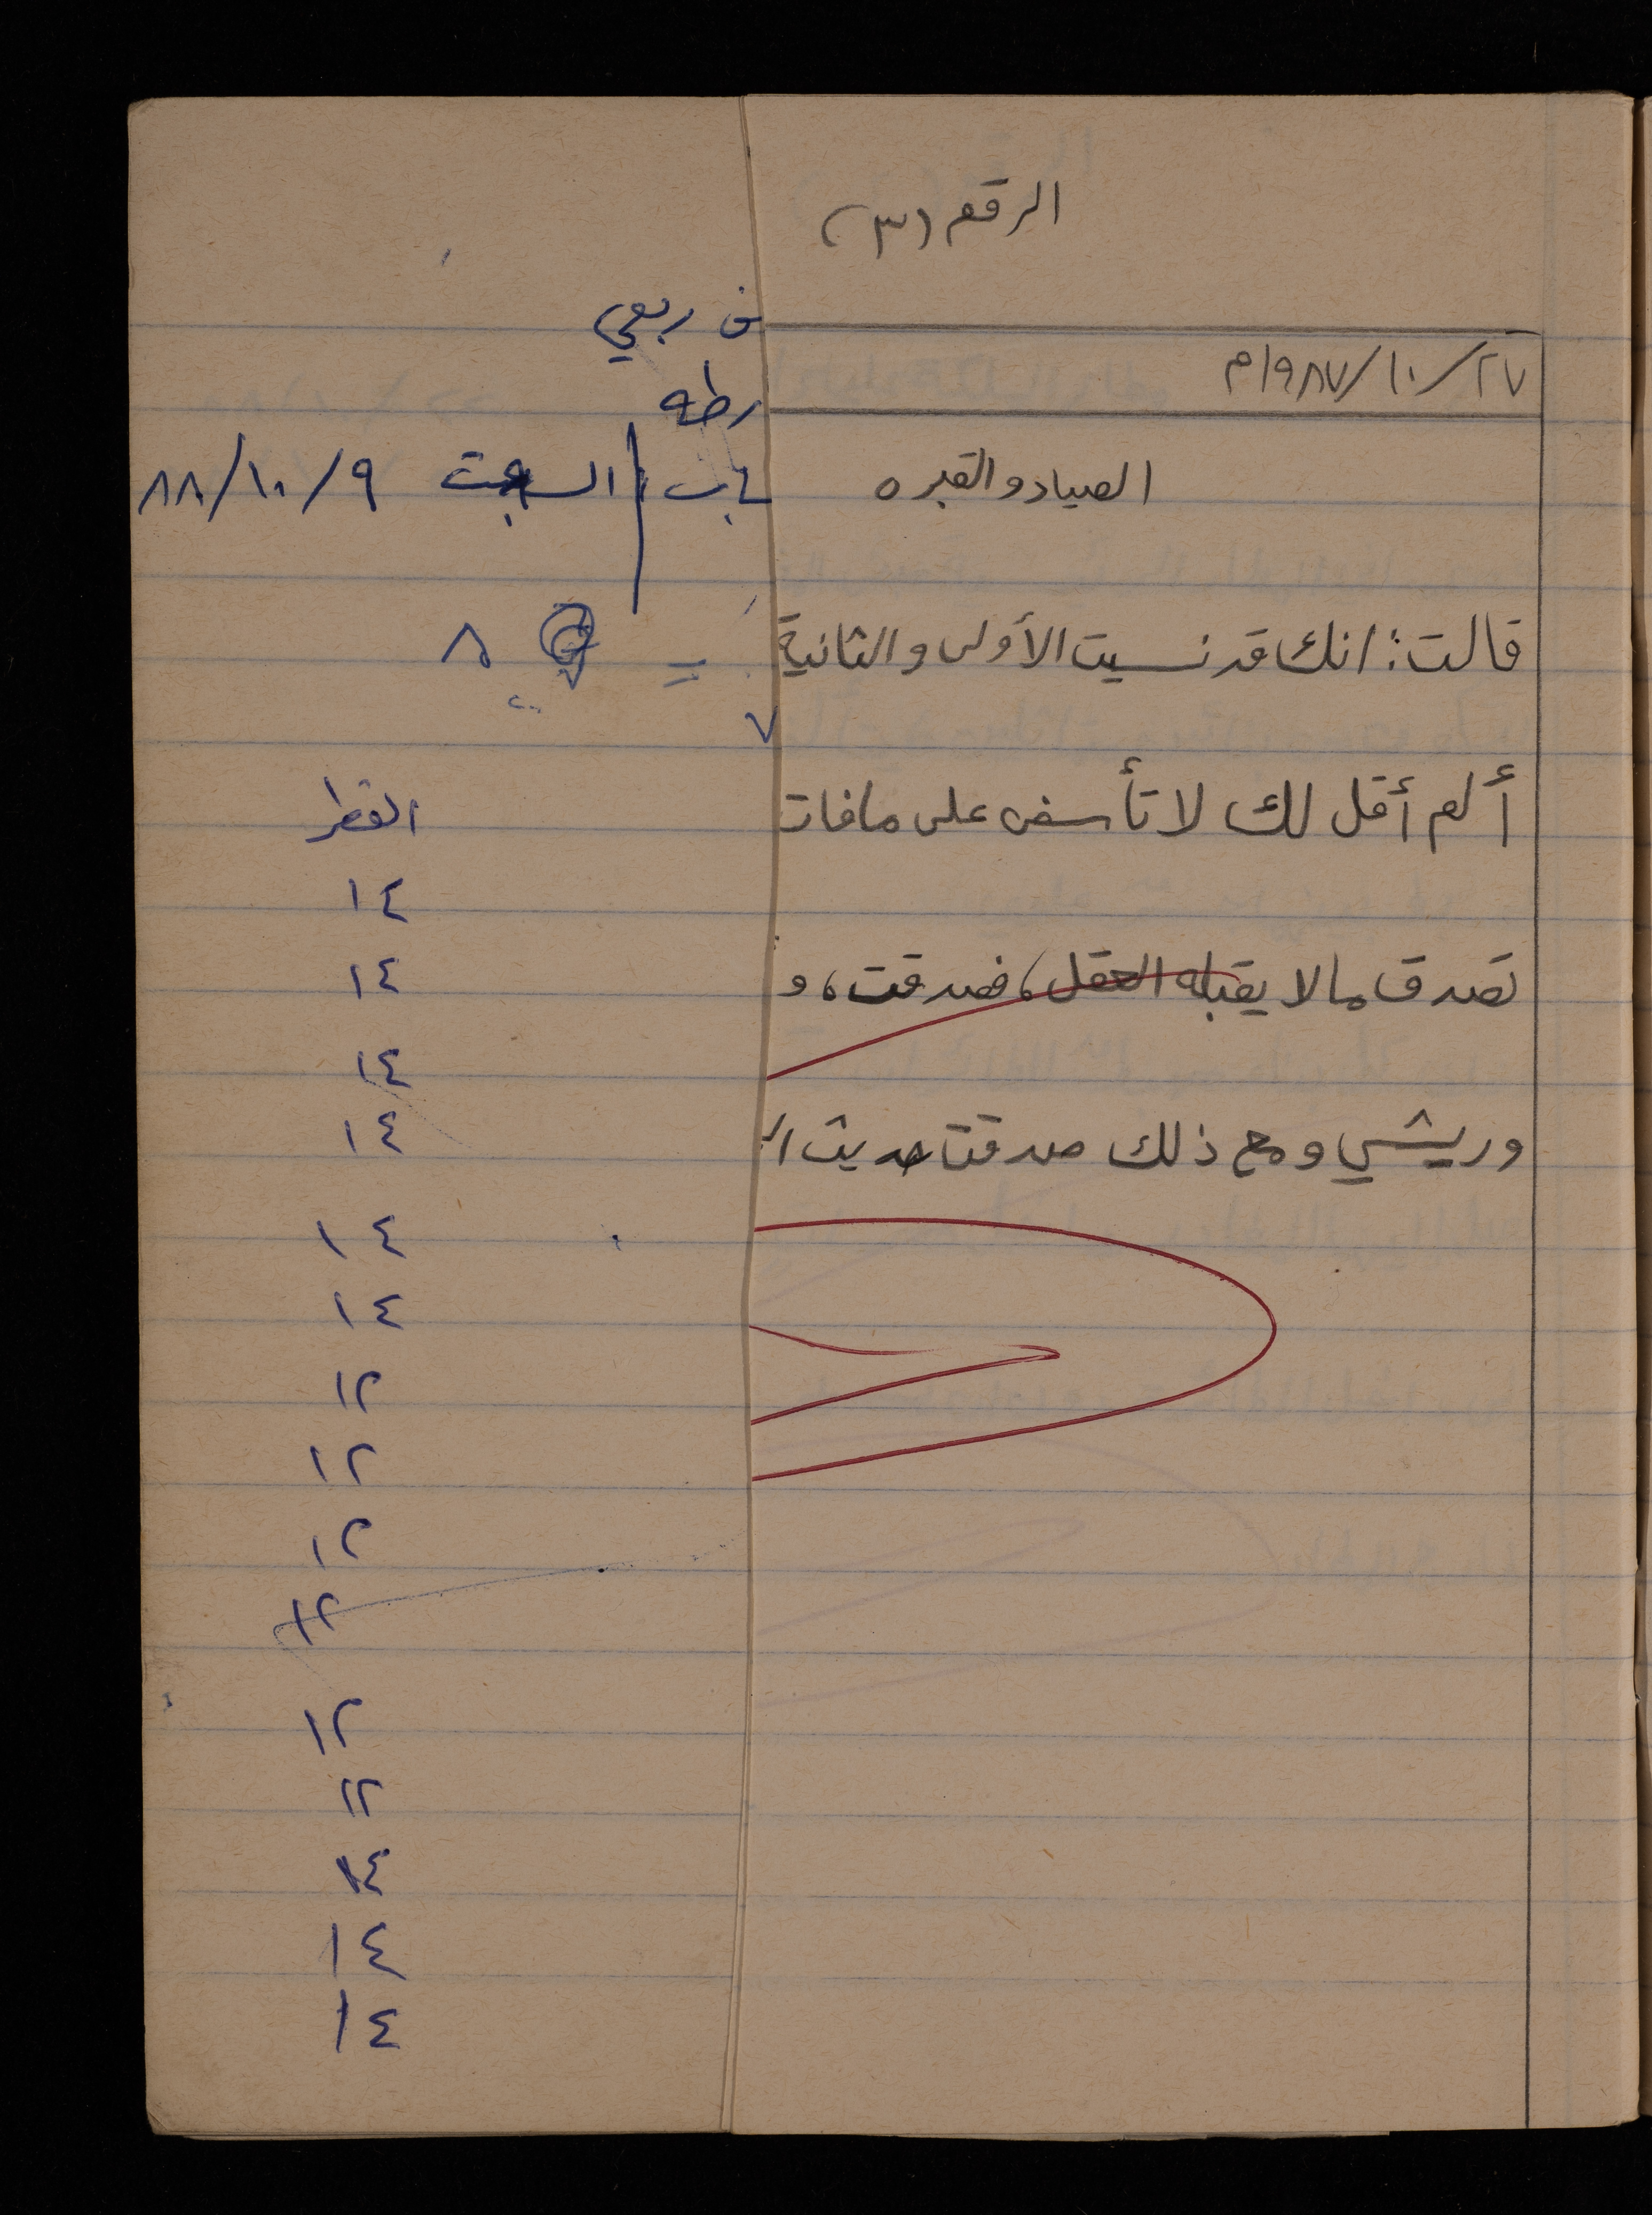 الرقم (٣)
٢٧/١٠/١٩٨٧م
الصياد والقبره
قالت: انك قد نسيت الأولى والثانية
ألم أقل لك لا تأسفن على ما فات
تصدق بما لا يقبله العقل، فصدقت، و
وريشي ومع ذلك صدقت حديث ا
ربعي
السبت ٩/١٠/٨٨
٨
٧
القطر
١٤
١٤
١٤
١٤
١٤
١٤
١٢
١٢
١٢
١٢
١٢
١٢
١٤
١٤
١٤